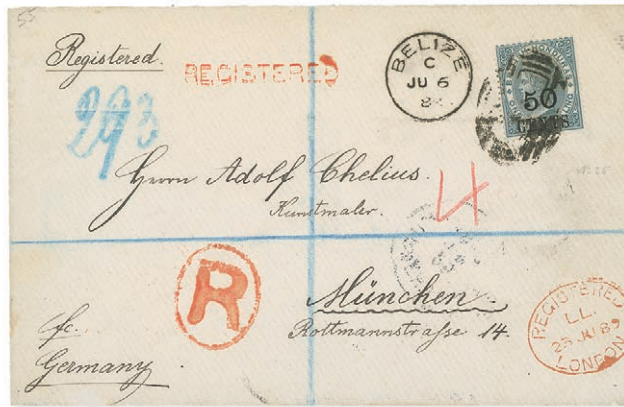 55
Registered.
REGISTERED
BELIZE
C
JU 6
50
CENTS
293
Herrn Adolf Chelius.
Kunstmaler.
4
R
München.
Rottmannstraße 14.
fc.
Germany
REGISTERED
LL.
25 JU 89
LONDON